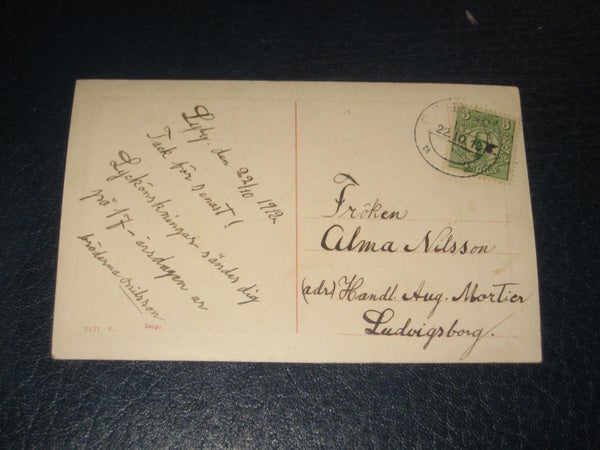 Lyby. den 22/10 1912
Tack för senast!
Lyckönskningar sändes dig
på 17-årsdagen av
bröderna Nilsson
2431. 4. Imp.
22.10.12
5 5
Fröken
Alma Nilsson
(adr) Handl. Aug. Mortier
Ludvigsborg.